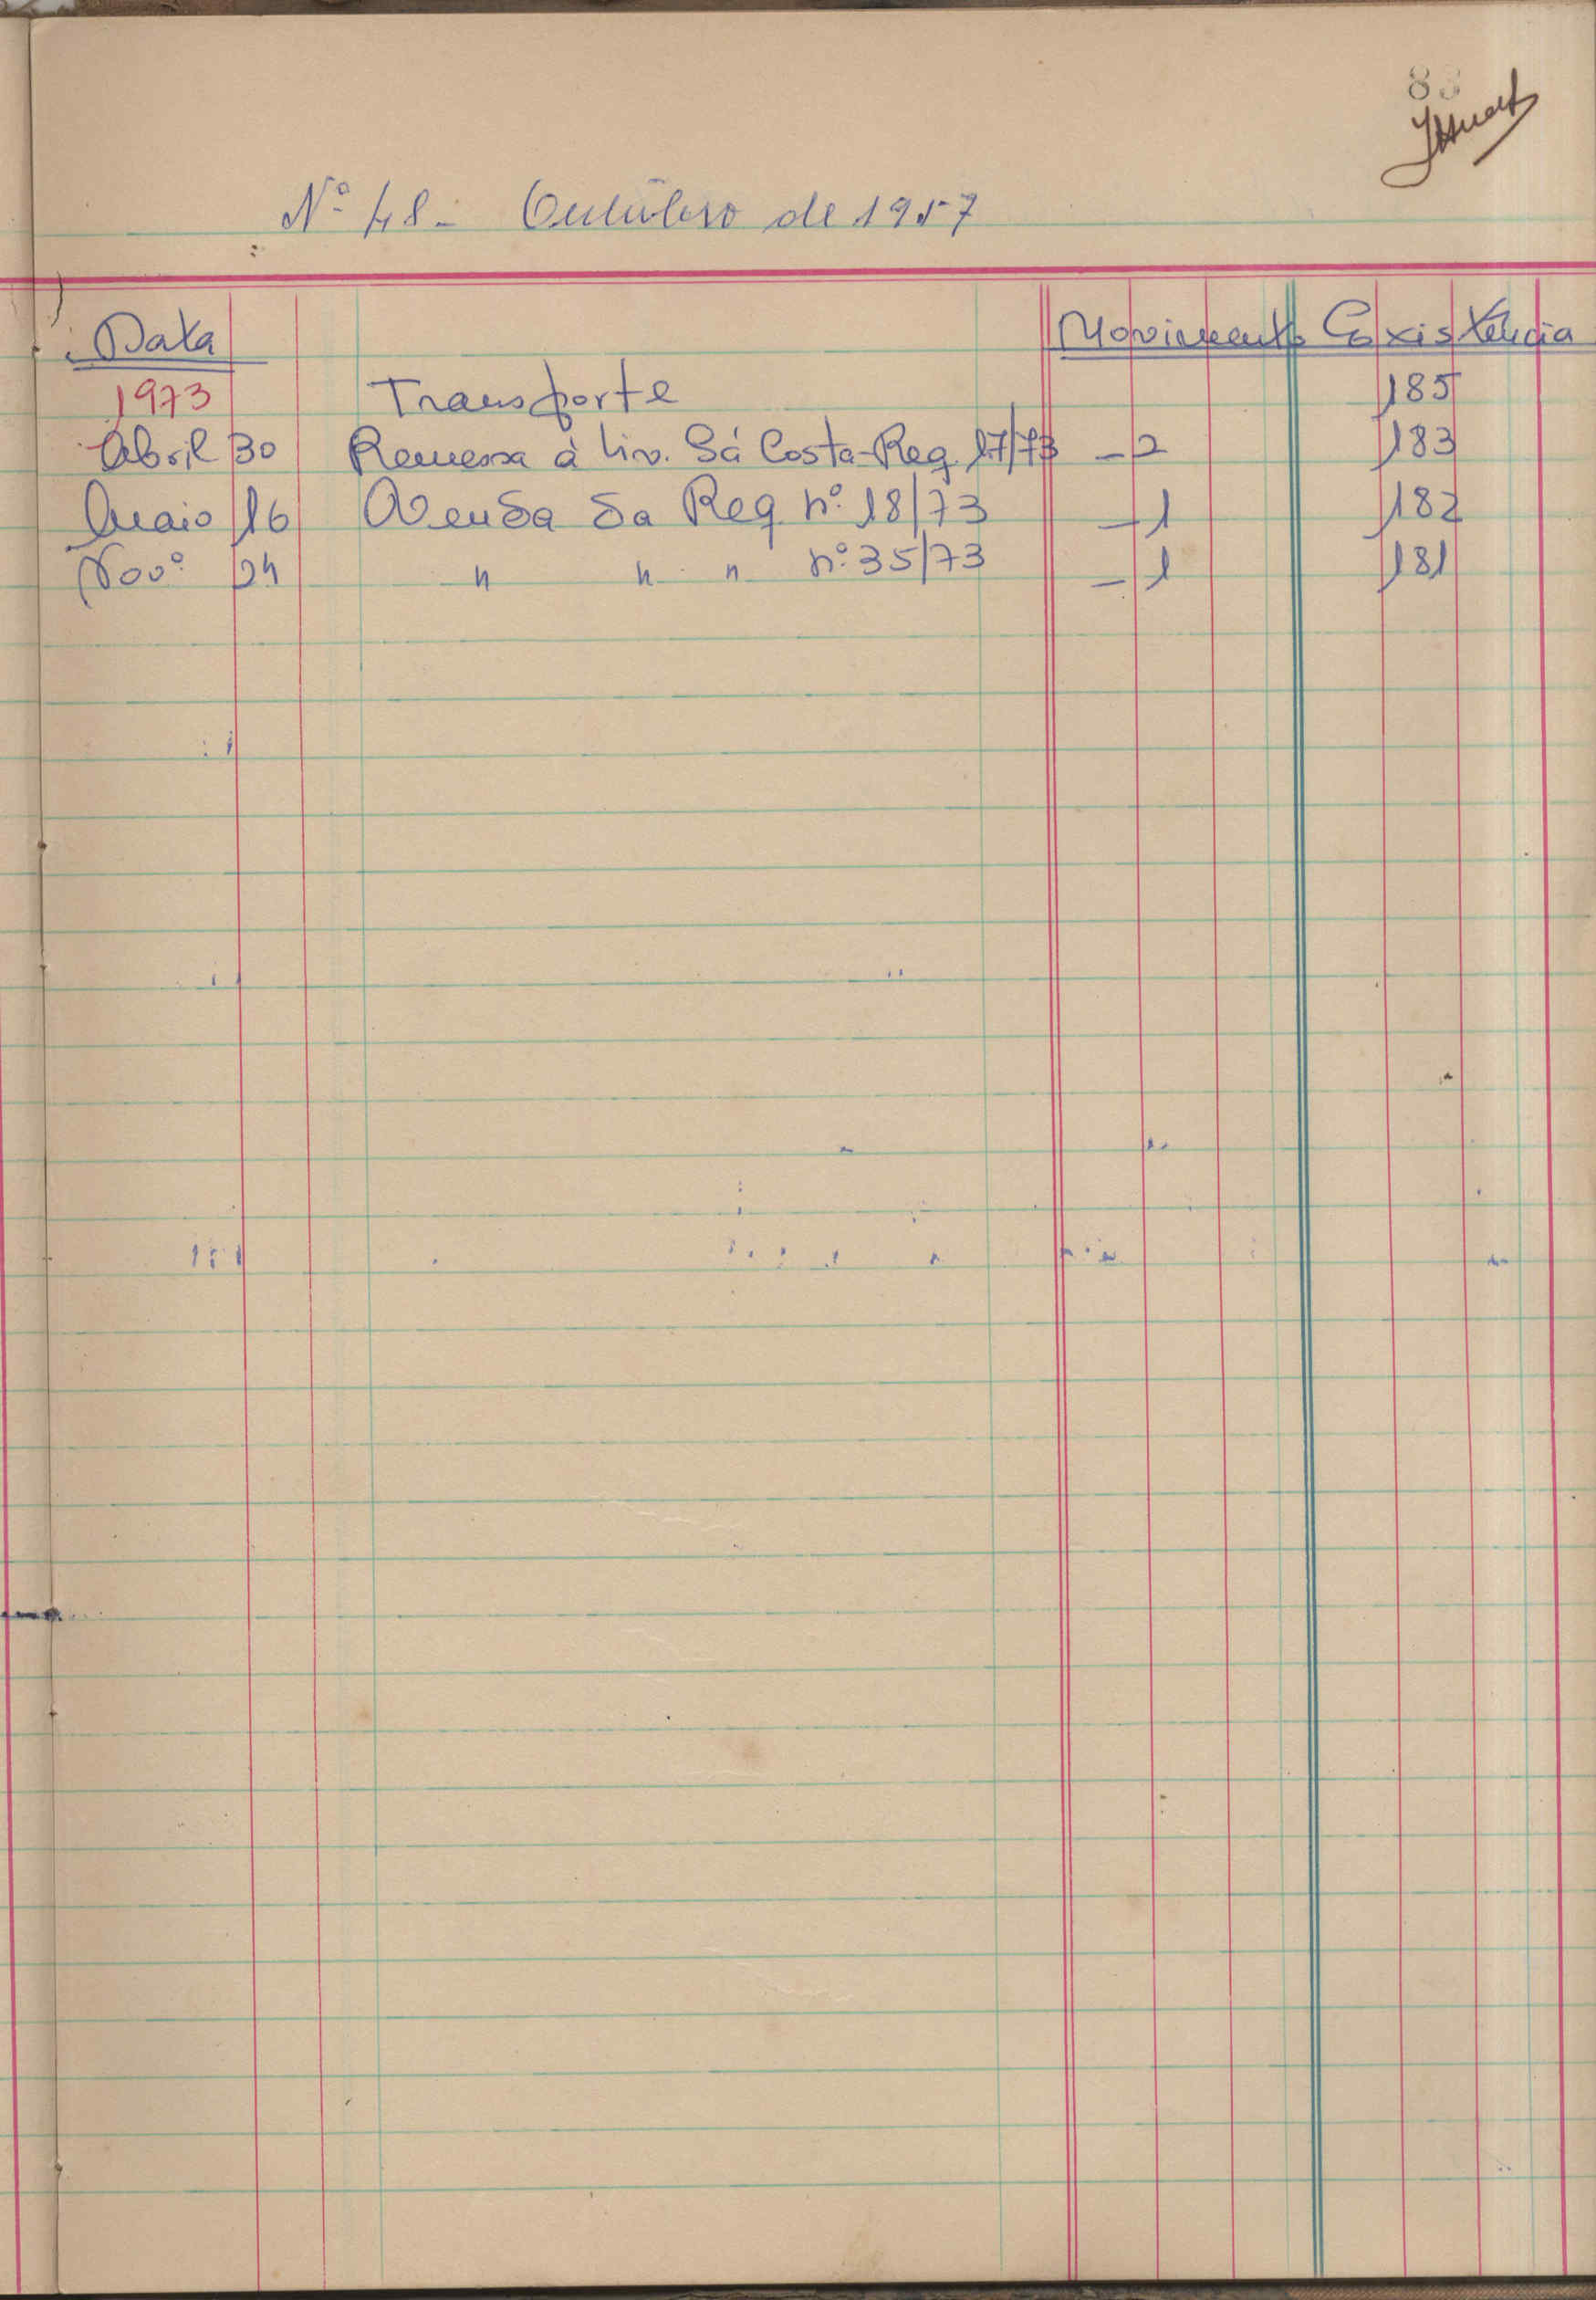 Nº 48 - Outubro de 1957
Data Movimento Existência
1973 Transporte 185
Abril 30 Remessa à Liv. Sá Costa - Reg. 17/73 - 2 183
Maio 16 Venda da Req nº 18/73 - 1 182
Novº 24 " " " nº 35/73 - 1 181